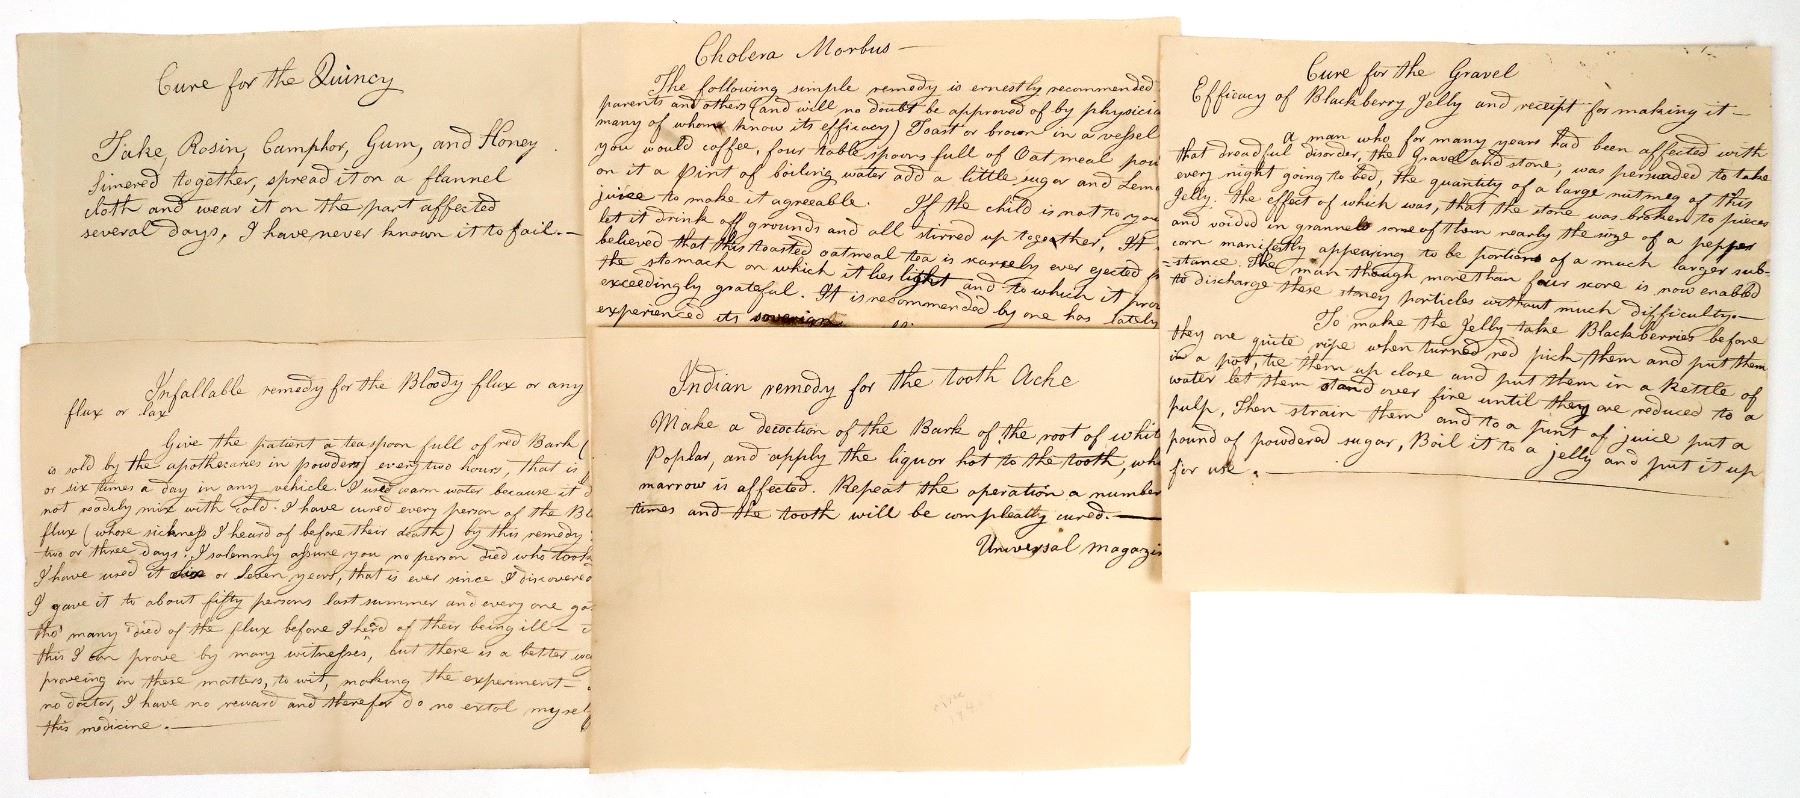 Cure for the Quincy
Take, Rosin, Camphor, Gum, and Honey.
Simered together, spread it on a flannel
cloth and wear it on the part affected
several days, I have never known it to fail.—
Cholera Morbus—
The following simple remedy is ernestly recommended
parents and others (and will no doubt be approved of by physicia
many of whom know its efficacy) Toast or brown in a vessel
you would coffee, four table spoons full of Oat meal pou
on it a pint of boiling water add a little sugar and Lemo
juice to make it agreeable. If the child is not to you
let it drink off grounds and all stirred up together, It
believed that this toasted oatmeal tea is scarcely ever ejected f
the stomach on which it lies light and to which it prov
exceedingly grateful. It is recommended by one has lately
experienced its soverign
Cure for the Gravel
Efficacy of Blackberry Jelly and receipt for making it—
A man who for many years had been affected with
that dreadful disorder, the Gravel and stone, was persuaded to take
every night going to bed, the quantity of a large nutmeg of this
Jelly. the effect of which was, that the stone was broken to pieces
and voided in grannels some of them nearly the size of a pepper
corn manifestly appearing to be portions of a much larger sub-
=stance. The man though more than four score is now enabled
to discharge these stoney particles without much difficulty.—
To make the Jelly take Blackberries before
they are quite ripe when turned red pick them and put them
in a pot, tie them up close and put them in a kettle of
water let them stand over fire until they are reduced to a
pulp, Then strain them and to a pint of juice put a
pound of powdered sugar, Boil it to a jelly and put it up
for use.
Infallable remedy for the Bloody flux or any
flux or lax
Give the patient a teaspoon full of red Bark (
is sold by the apothecaries in powders) every two hours, that is
or six times a day in any vehicle. I used warm water because it d
not readily mix with cold. I have cured every person of the Bl
flux (whose sickness I heard of before their death) by this remedy
two or three days. I solemnly assure you no person died who took
I have used it six or seven years, that is ever since I discovered
I gave it to about fifty persons last summer and every one go
tho' many died of the flux before I heard of their being ill—
this I can prove by many witnesses, but there is a better wa
proveing in these matters, to wit, making the experiment—
no doctor, I have no reward and therefor do no extol myself
this medicine.—
Indian remedy for the tooth Ache
Make a decoction of the Bark of the root of whit
Poplar, and apply the liquor hot to the tooth, whe
marrow is affected. Repeat the operation a number
times and the tooth will be compleatly cured.—
Universal magazi